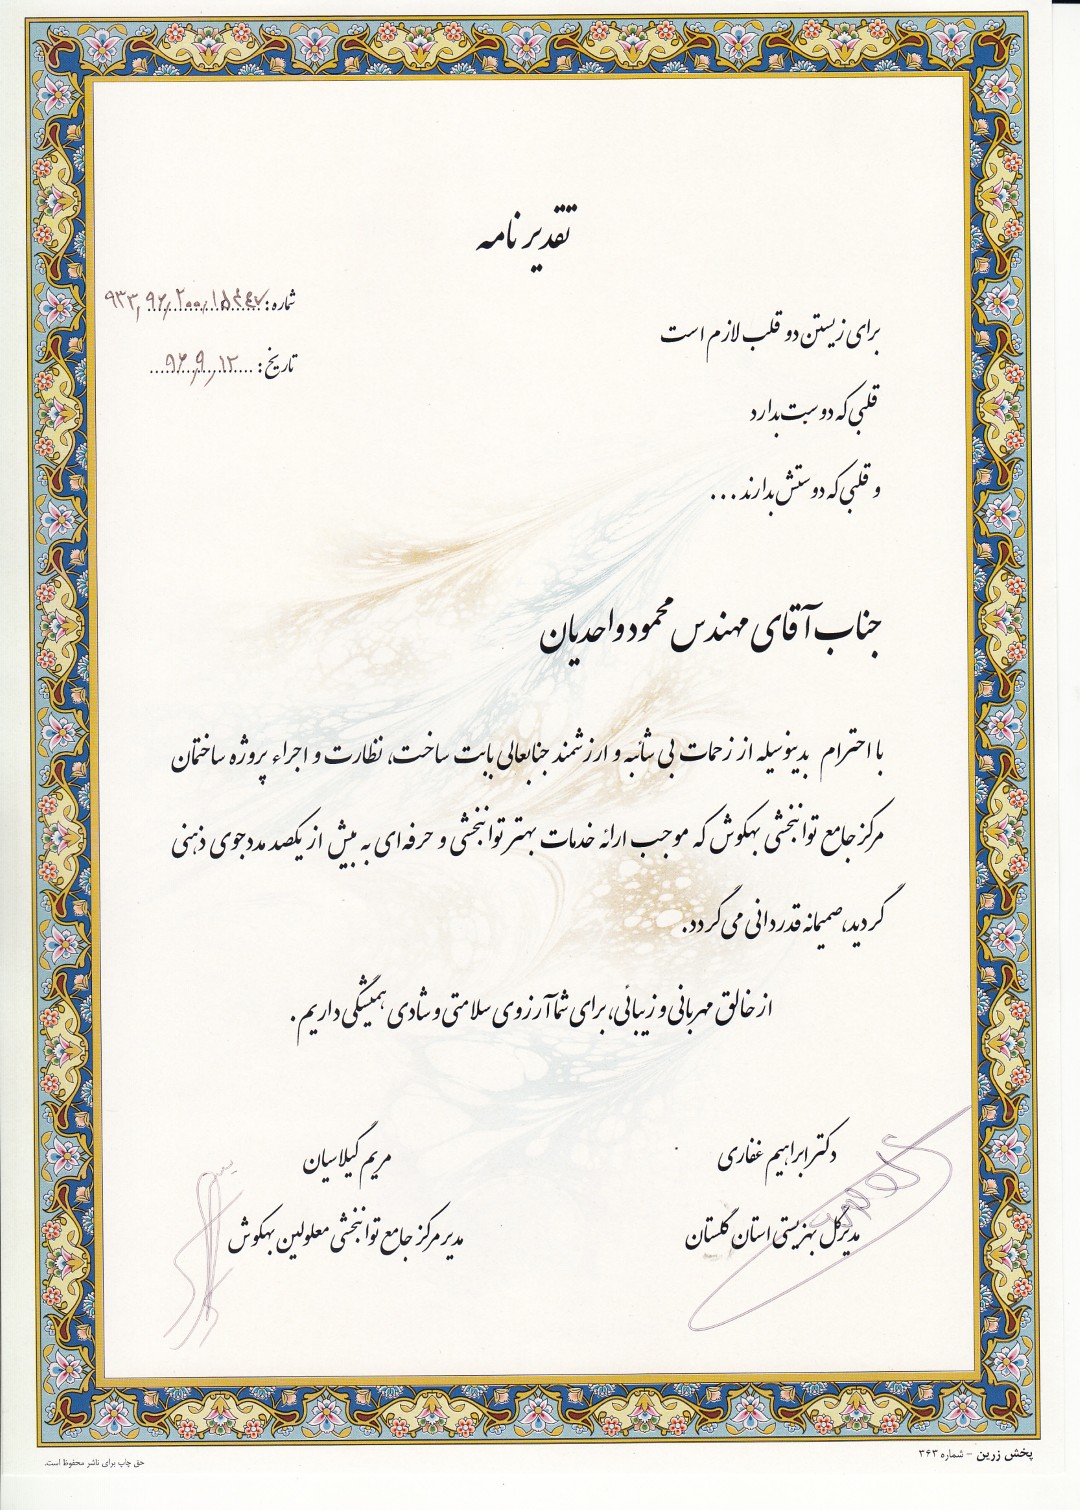 تقدیر نامه
شماره: ۹۳۳/۹۶/۲۰۰/۱۵۴۴۷
تاریخ: ۹۶/۹/۱۲
برای زیستن دو قلب لازم است
قلبی که دوست بدارد
و قلبی که دوستش بدارند ...
جناب آقای مهندس محمود واحدیان
با احترام بدینوسیله از زحمات بی شائبه و ارزشمند جنابعالی بابت ساخت، نظارت و اجراء پروژه ساختمان
مرکز جامع توانبخشی بهکوش که موجب ارائه خدمات بهتر توانبخشی و حرفه ای به بیش از یکصد مددجوی ذهنی
گردید، صمیمانه قدردانی می گردد.
از خالق مهربانی و زیبائی، برای شما آرزوی سلامتی و شادی همیشگی داریم.
دکتر ابراهیم غفاری
مدیرکل بهزیستی استان گلستان
مریم گیلاسیان
مدیر مرکز جامع توانبخشی معلولین بهکوش
پخش زرین - شماره ۳۶۳
حق چاپ برای ناشر محفوظ است.